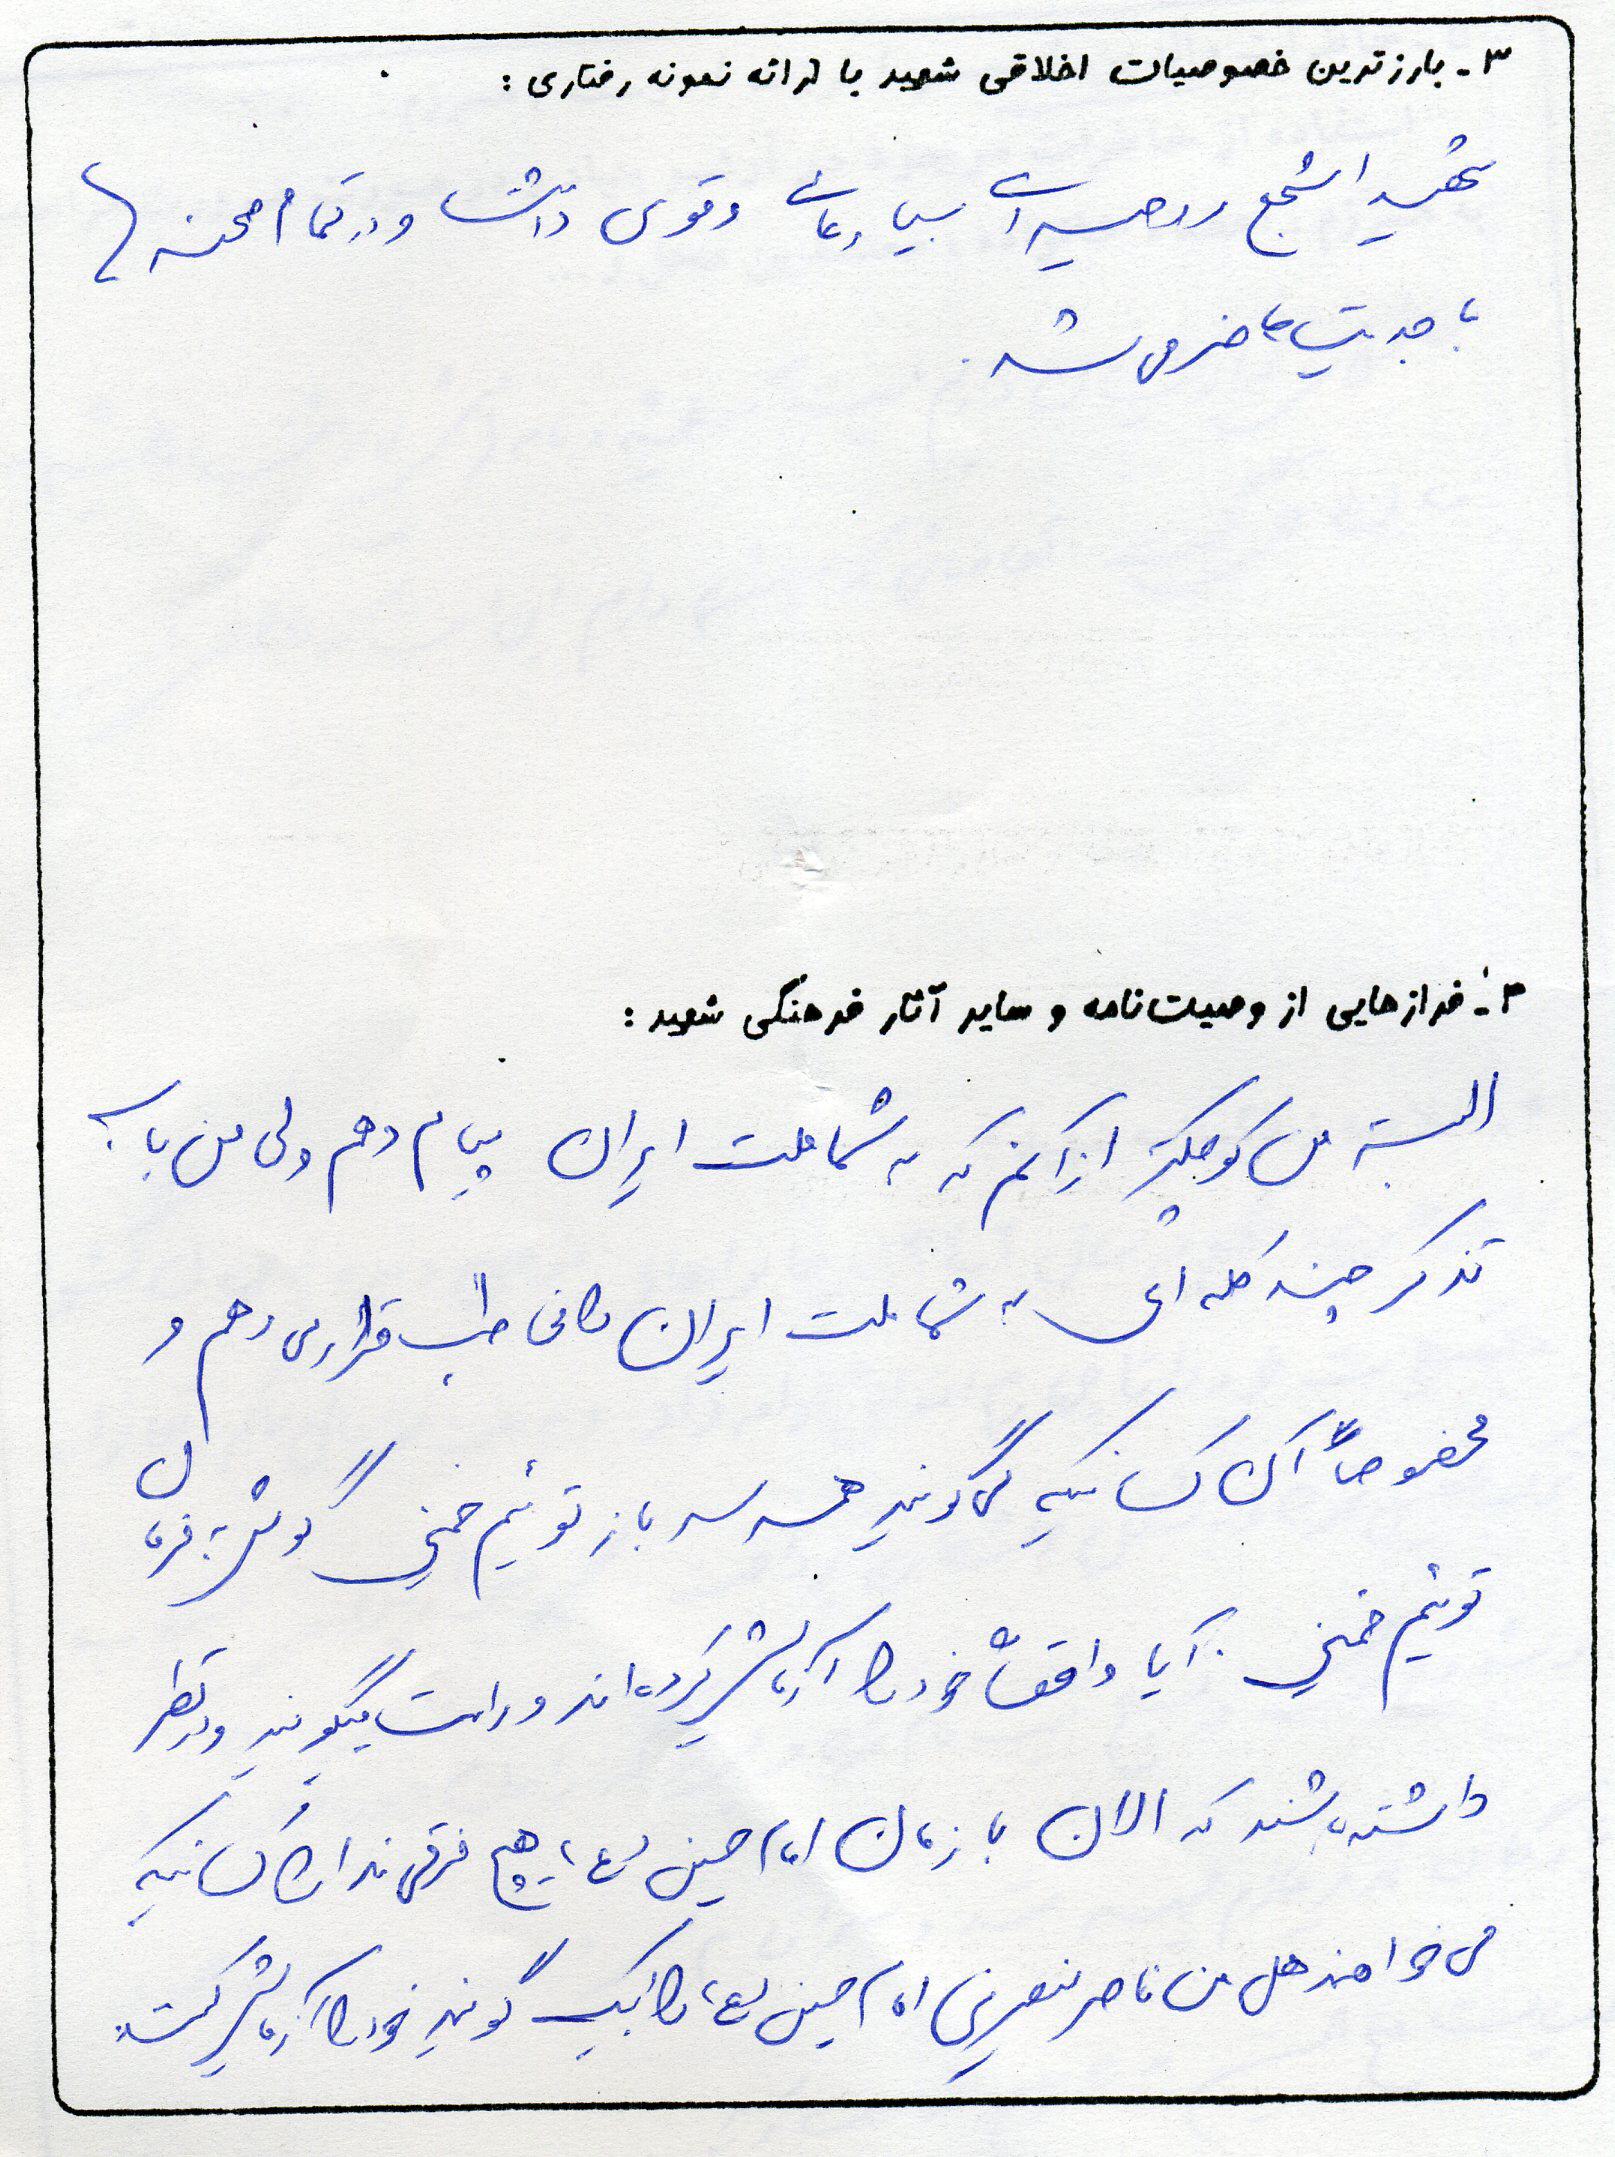 ۳ـ بارزترین خصوصیات اخلاقی شهید با ارائه نمونه رفتاری :
شهید اشجع روحیه‌ای بسیار عالی و قوی داشت و در تمام صحنه ها
با جدیت حاضر می شد .
۴ـ فرازهایی از وصیت‌نامه و سایر آثار فرهنگی شهید :
البته من کوچکتر از آنم که به شما ملت ایران پیام دهم ولی من باب
تذکر چند کلمه ای به شما ملت ایران را مخاطب قرار می دهم و
مخصوصاً آن کسانیکه می گویند همه سرباز توئیم خمینی گوش به فرمان
توئیم خمینی . آیا واقعاً خود را آزمایش کرده اند و راست میگویند و در نظر
داشته باشند که الان با زمان امام حسین (ع) هیچ فرقی ندارد کسانیکه
می خواهند هل من ناصر ینصرنی امام حسین (ع) را لبیک گویند خود را آزمایش کنند